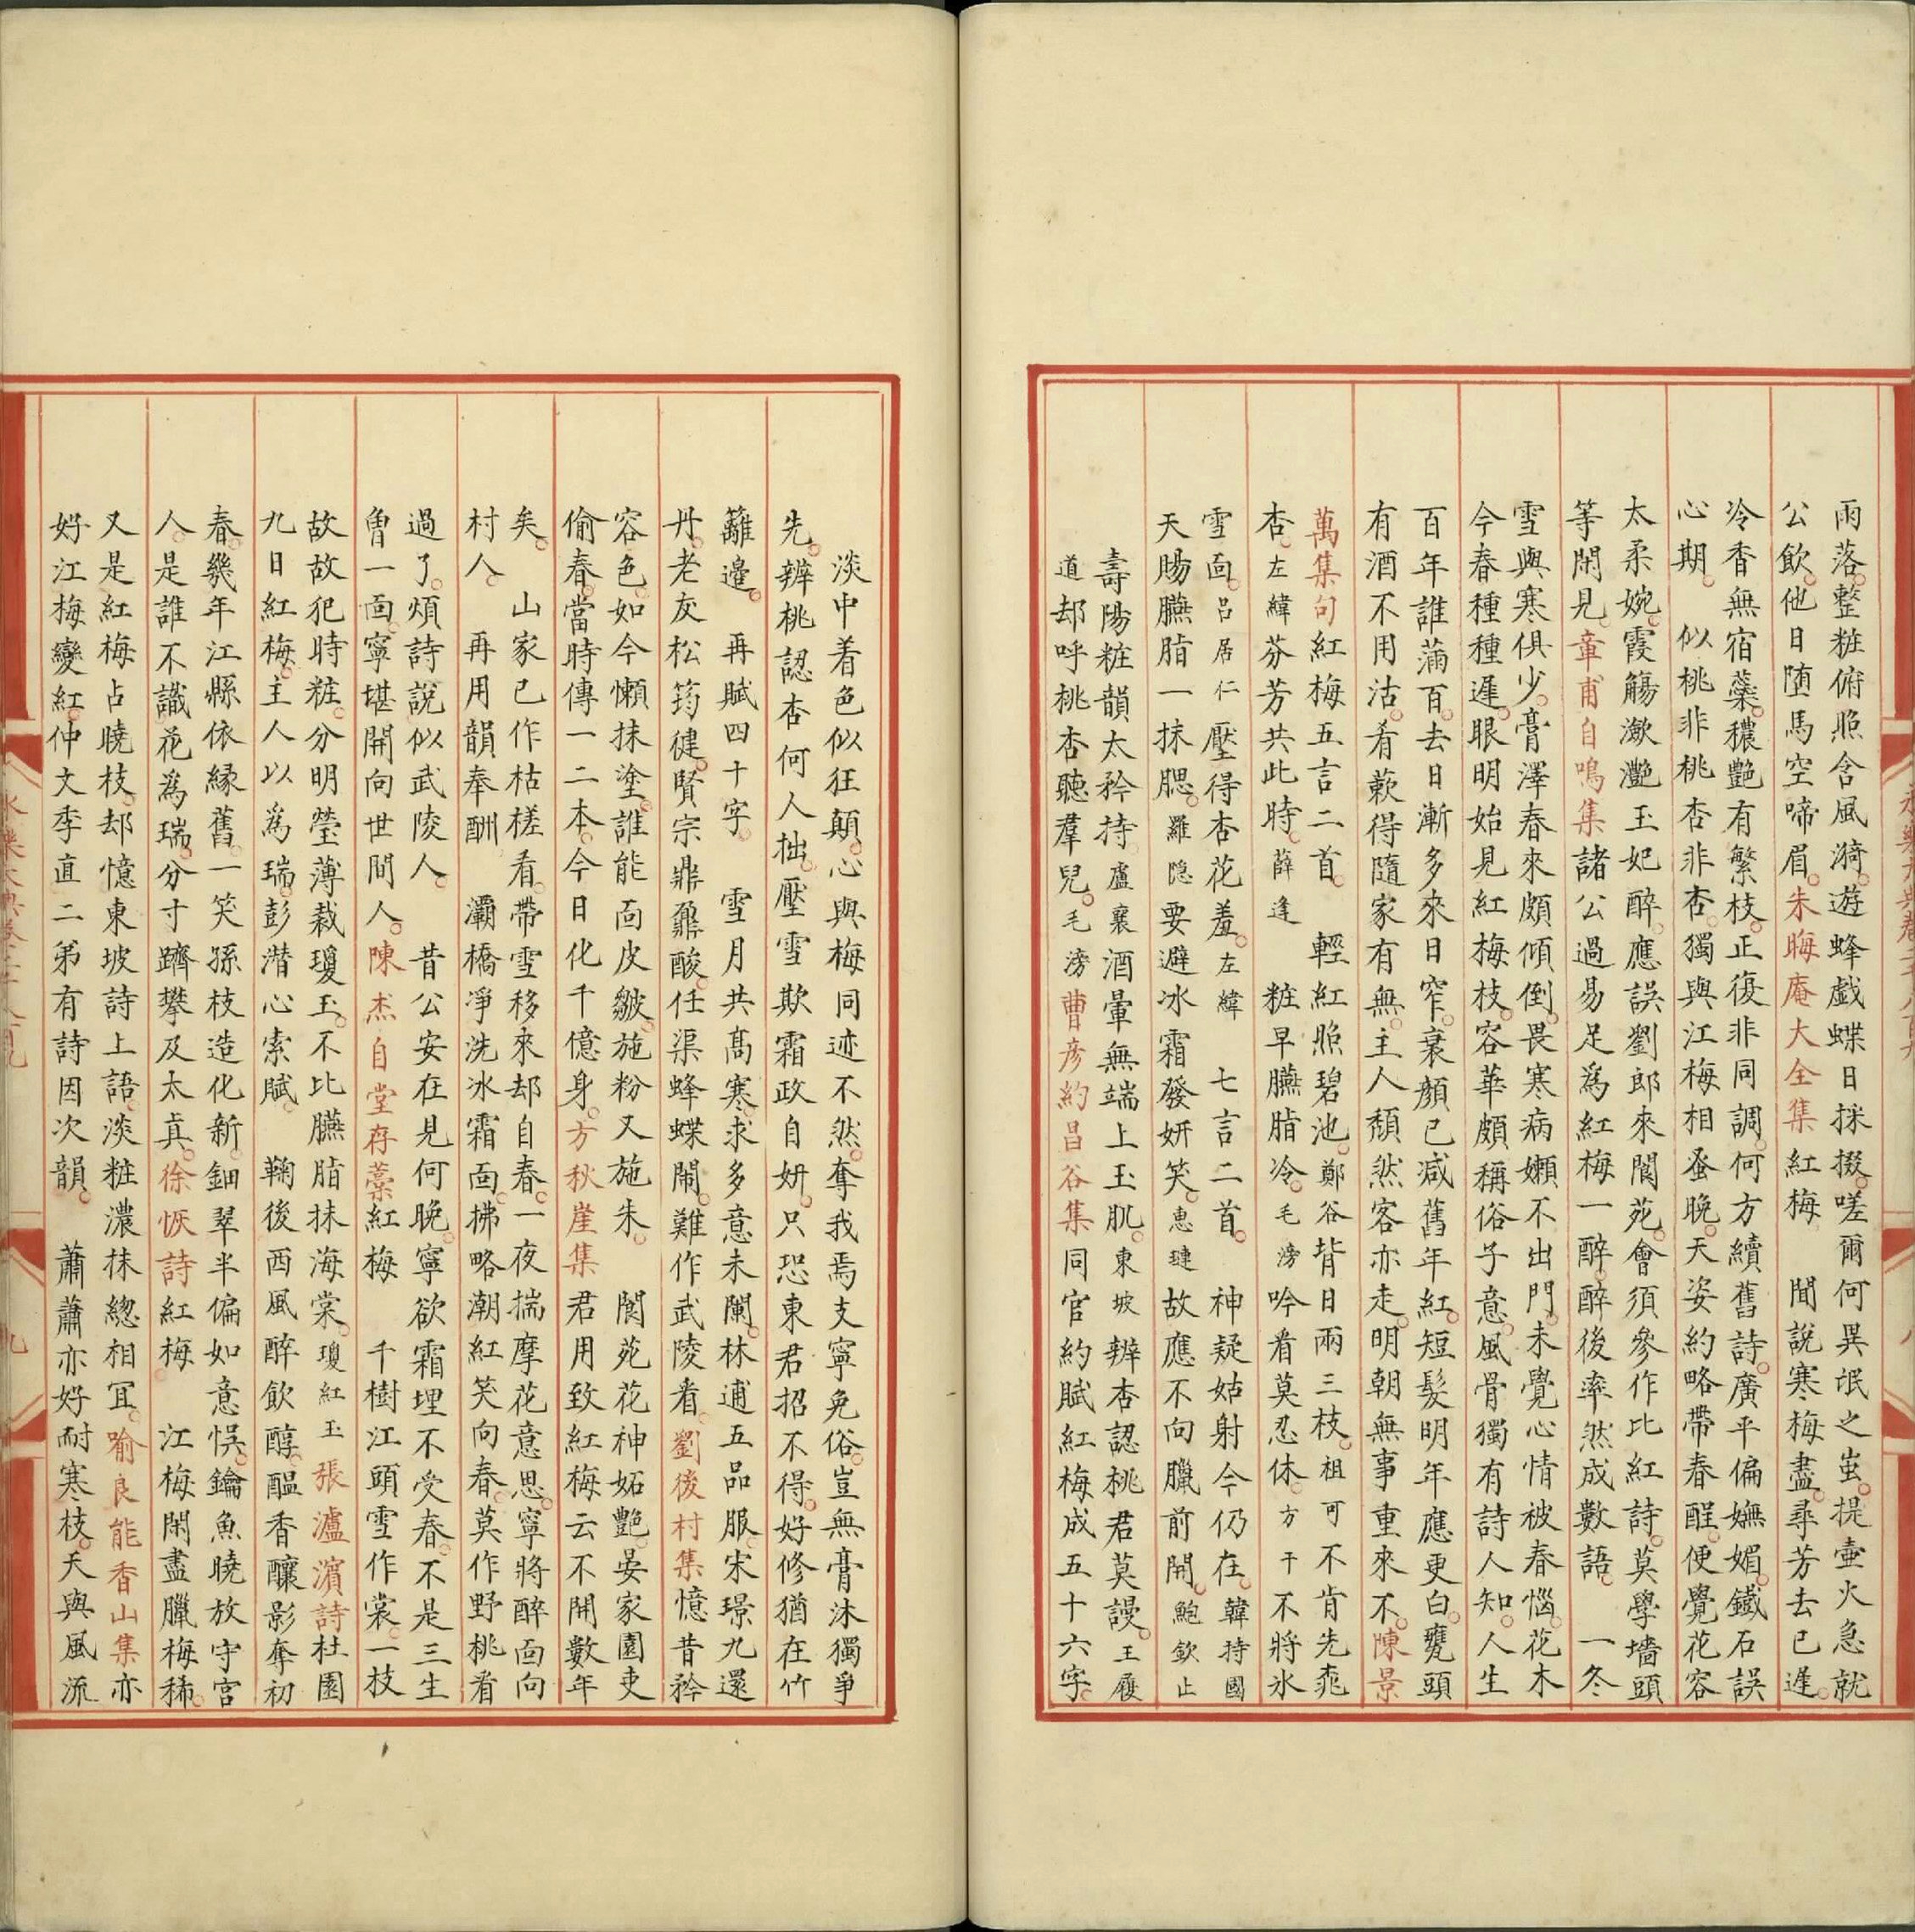 雨落。整粧俯照含風漪。遊蜂戲蝶日採掇。嗟爾何異氓之蚩。提壷火急就
公飲。他日墮馬空啼眉。朱晦庵大全集紅梅　聞說寒梅盡。尋芳去已遲。
冷香無宿蘂。穠艷有繁枝。正復非同調。何方續舊詩。廣平偏嫵媚。鐵石誤
心期。　似桃非桃杏非杏。獨與江梅相蚤晚。天姿約略帶春酲。便覺花容
太柔婉。霞觴瀲灔玉妃醉。應誤劉郎來閬苑。會須參作比紅詩。莫學墻頭
等閑見。章甫自鳴集諸公過易足為紅梅一醉。醉後率然成數語。　一冬
雪與寒俱少。膏澤春來頗傾倒。畏寒病嬾不出門。未覺心情被春惱。花木
今春種種遲。眼明始見紅梅枝。容華頗稱俗子意。風骨獨有詩人知。人生
百年誰滿百。去日漸多來日窄。衰顔已减舊年紅。短髪明年應更白。甕頭
有酒不用沽。肴蔌得隨家有無。主人頹然客亦走。明朝無事重來不。陳景
萬集句紅梅五言二首。　輕紅照碧池。鄭谷背日兩三枝。祖可不肯先桃
杏。左緯芬芳共此時。薛逢　粧早臙脂冷。毛滂吟看莫忍休。方干不將氷
雪面。吕居仁壓得杏花羞。左緯　七言二首。　神疑姑射今仍在。韓持國
天賜臙脂一抹腮。羅隐要避冰霜發妍笑。惠璉故應不向臘前開。鮑欽止
壽陽粧韻太矜持。盧襄酒暈無端上玉肌。東坡辨杏認桃君莫謾。王履
道却呼桃杏聽羣兒。毛滂曹彦約昌谷集同官約賦紅梅成五十六字。
淡中着色似狂顛。心與梅同迹不然。奪我焉支寧免俗。豈無膏沐獨爭
先。辨桃認杏何人拙。壓雪欺霜政自妍。只恐東君招不得。好修猶在竹
籬邊。　再賦四十字。　雪月共髙寒。求多意未闌。林逋五品服。宋璟九還
丹。老灰松筠健。賢宗鼎鼐酸。任渠蜂蝶閙。難作武陵看。劉後村集憶昔矜
容色。如今懶抹塗。誰能面皮皺。施粉又施朱。　閬苑花神妬艷。晏家園吏
偷春。當時傳一二本。今日化千億身。方秋崖集君用致紅梅云不開數年
矣。　山家已作枯槎看。帶雪移來却自春。一夜揣摩花意思。寧將醉面向
村人。　再用韻奉酬　灞橋凈洗冰霜面。拂略潮紅笑向春。莫作野桃看
過了。煩詩說似武陵人。　昔公安在見何晚。寧欲霜埋不受春。不是三生
曾一面。寧堪開向世間人。陳杰自堂存藁紅梅　千樹江頭雪作裳。一枝
故故犯時粧。分明瑩薄裁瓊玉。不比臙脂抹海棠。瓊紅玉張瀘濵詩杜園
九日紅梅。主人以為瑞。彭潛心索賦。　鞠後西風醉飲醇。醖香釀影奪初
春。幾年江縣依緣舊。一笑孫枝造化新。鈿翠半偏如意悞。鑰魚曉放守宮
人。是誰不識花為瑞。分寸躋攀及太真。徐恢詩紅梅。　江梅閑盡臘梅稀。
又是紅梅占曉枝。却憶東坡詩上語。淡粧濃抹緫相宜。喻良能香山集亦
好江梅變紅。仲文季直二弟有詩因次韻。　蕭蕭亦好耐寒枝。天與風流